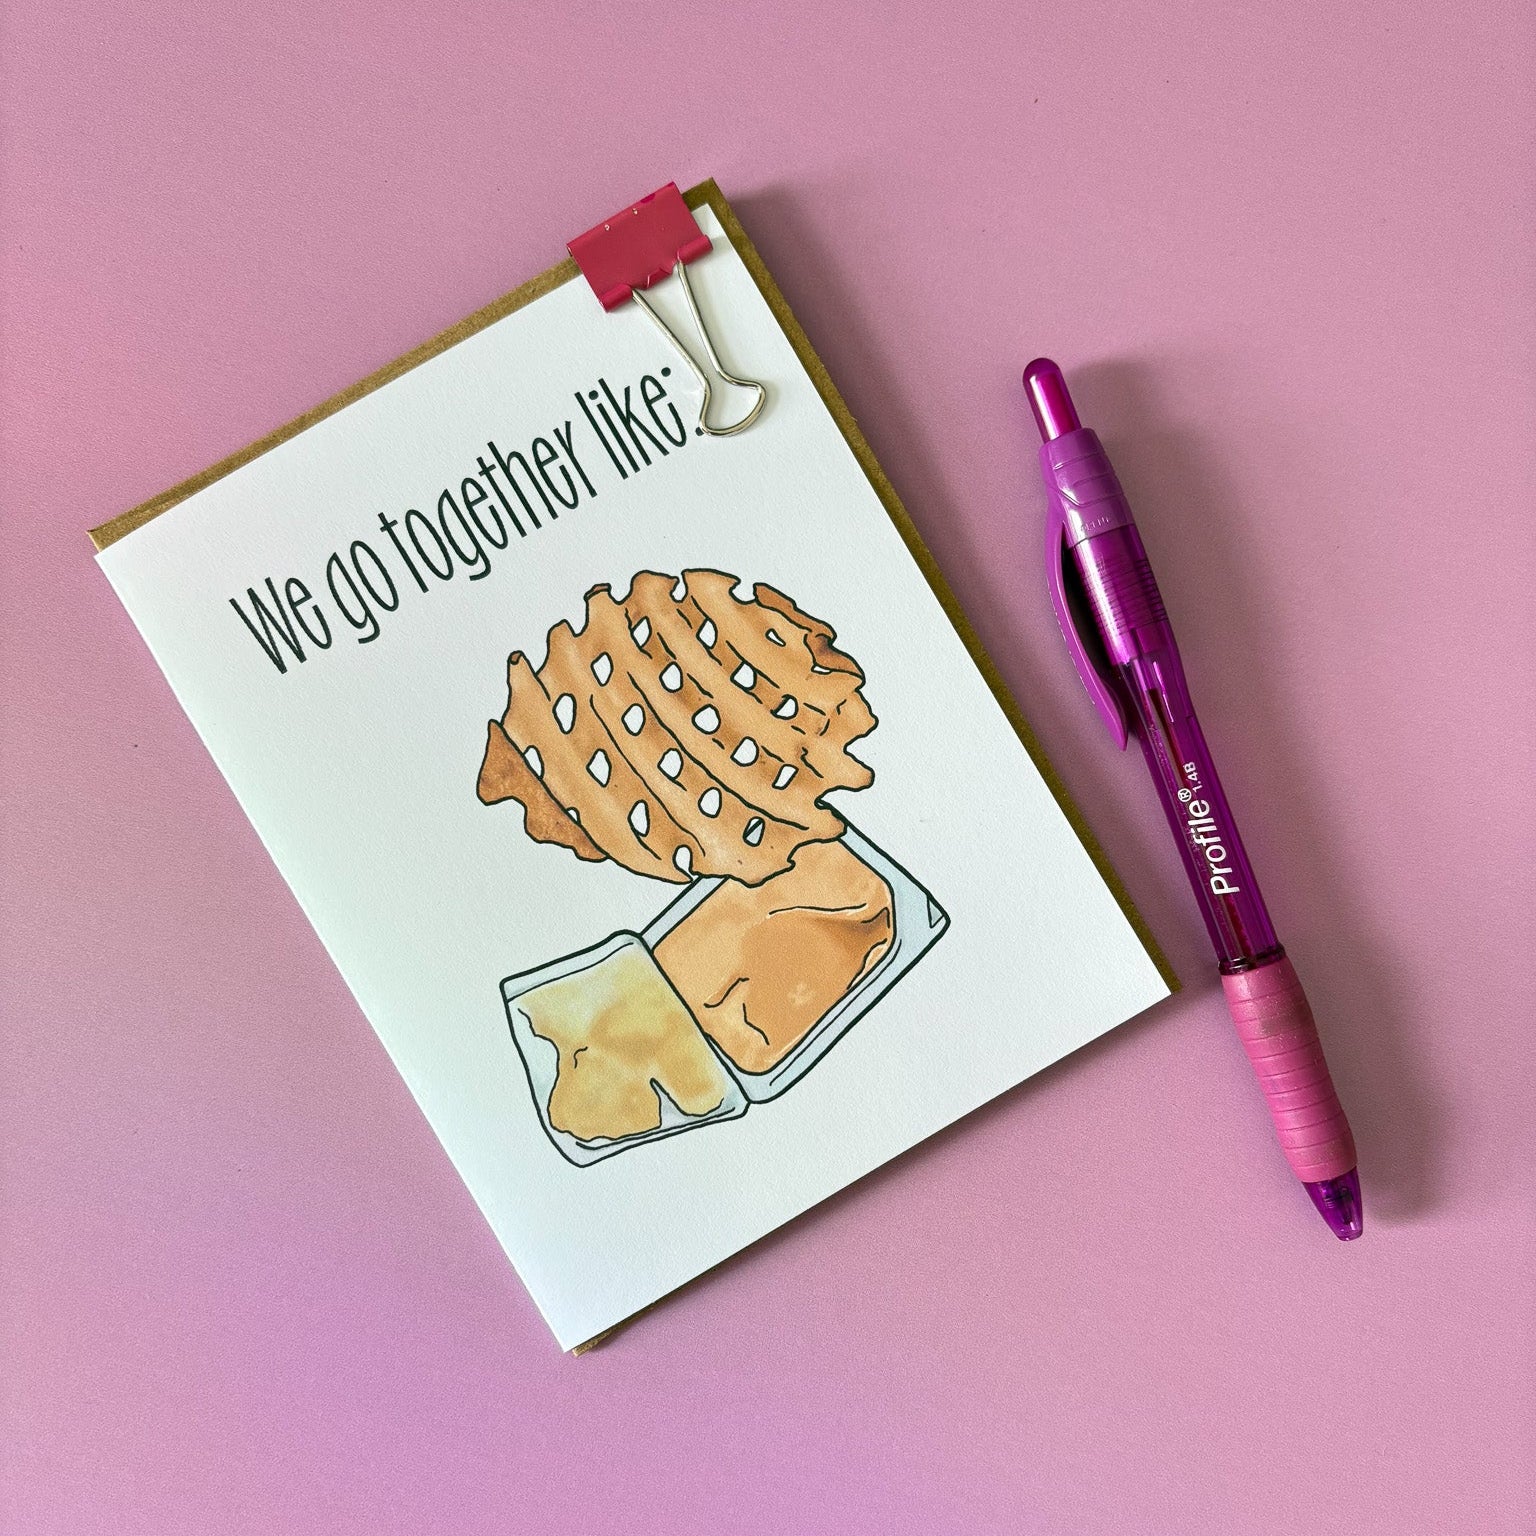 We go together like:
Profile® 1.4B